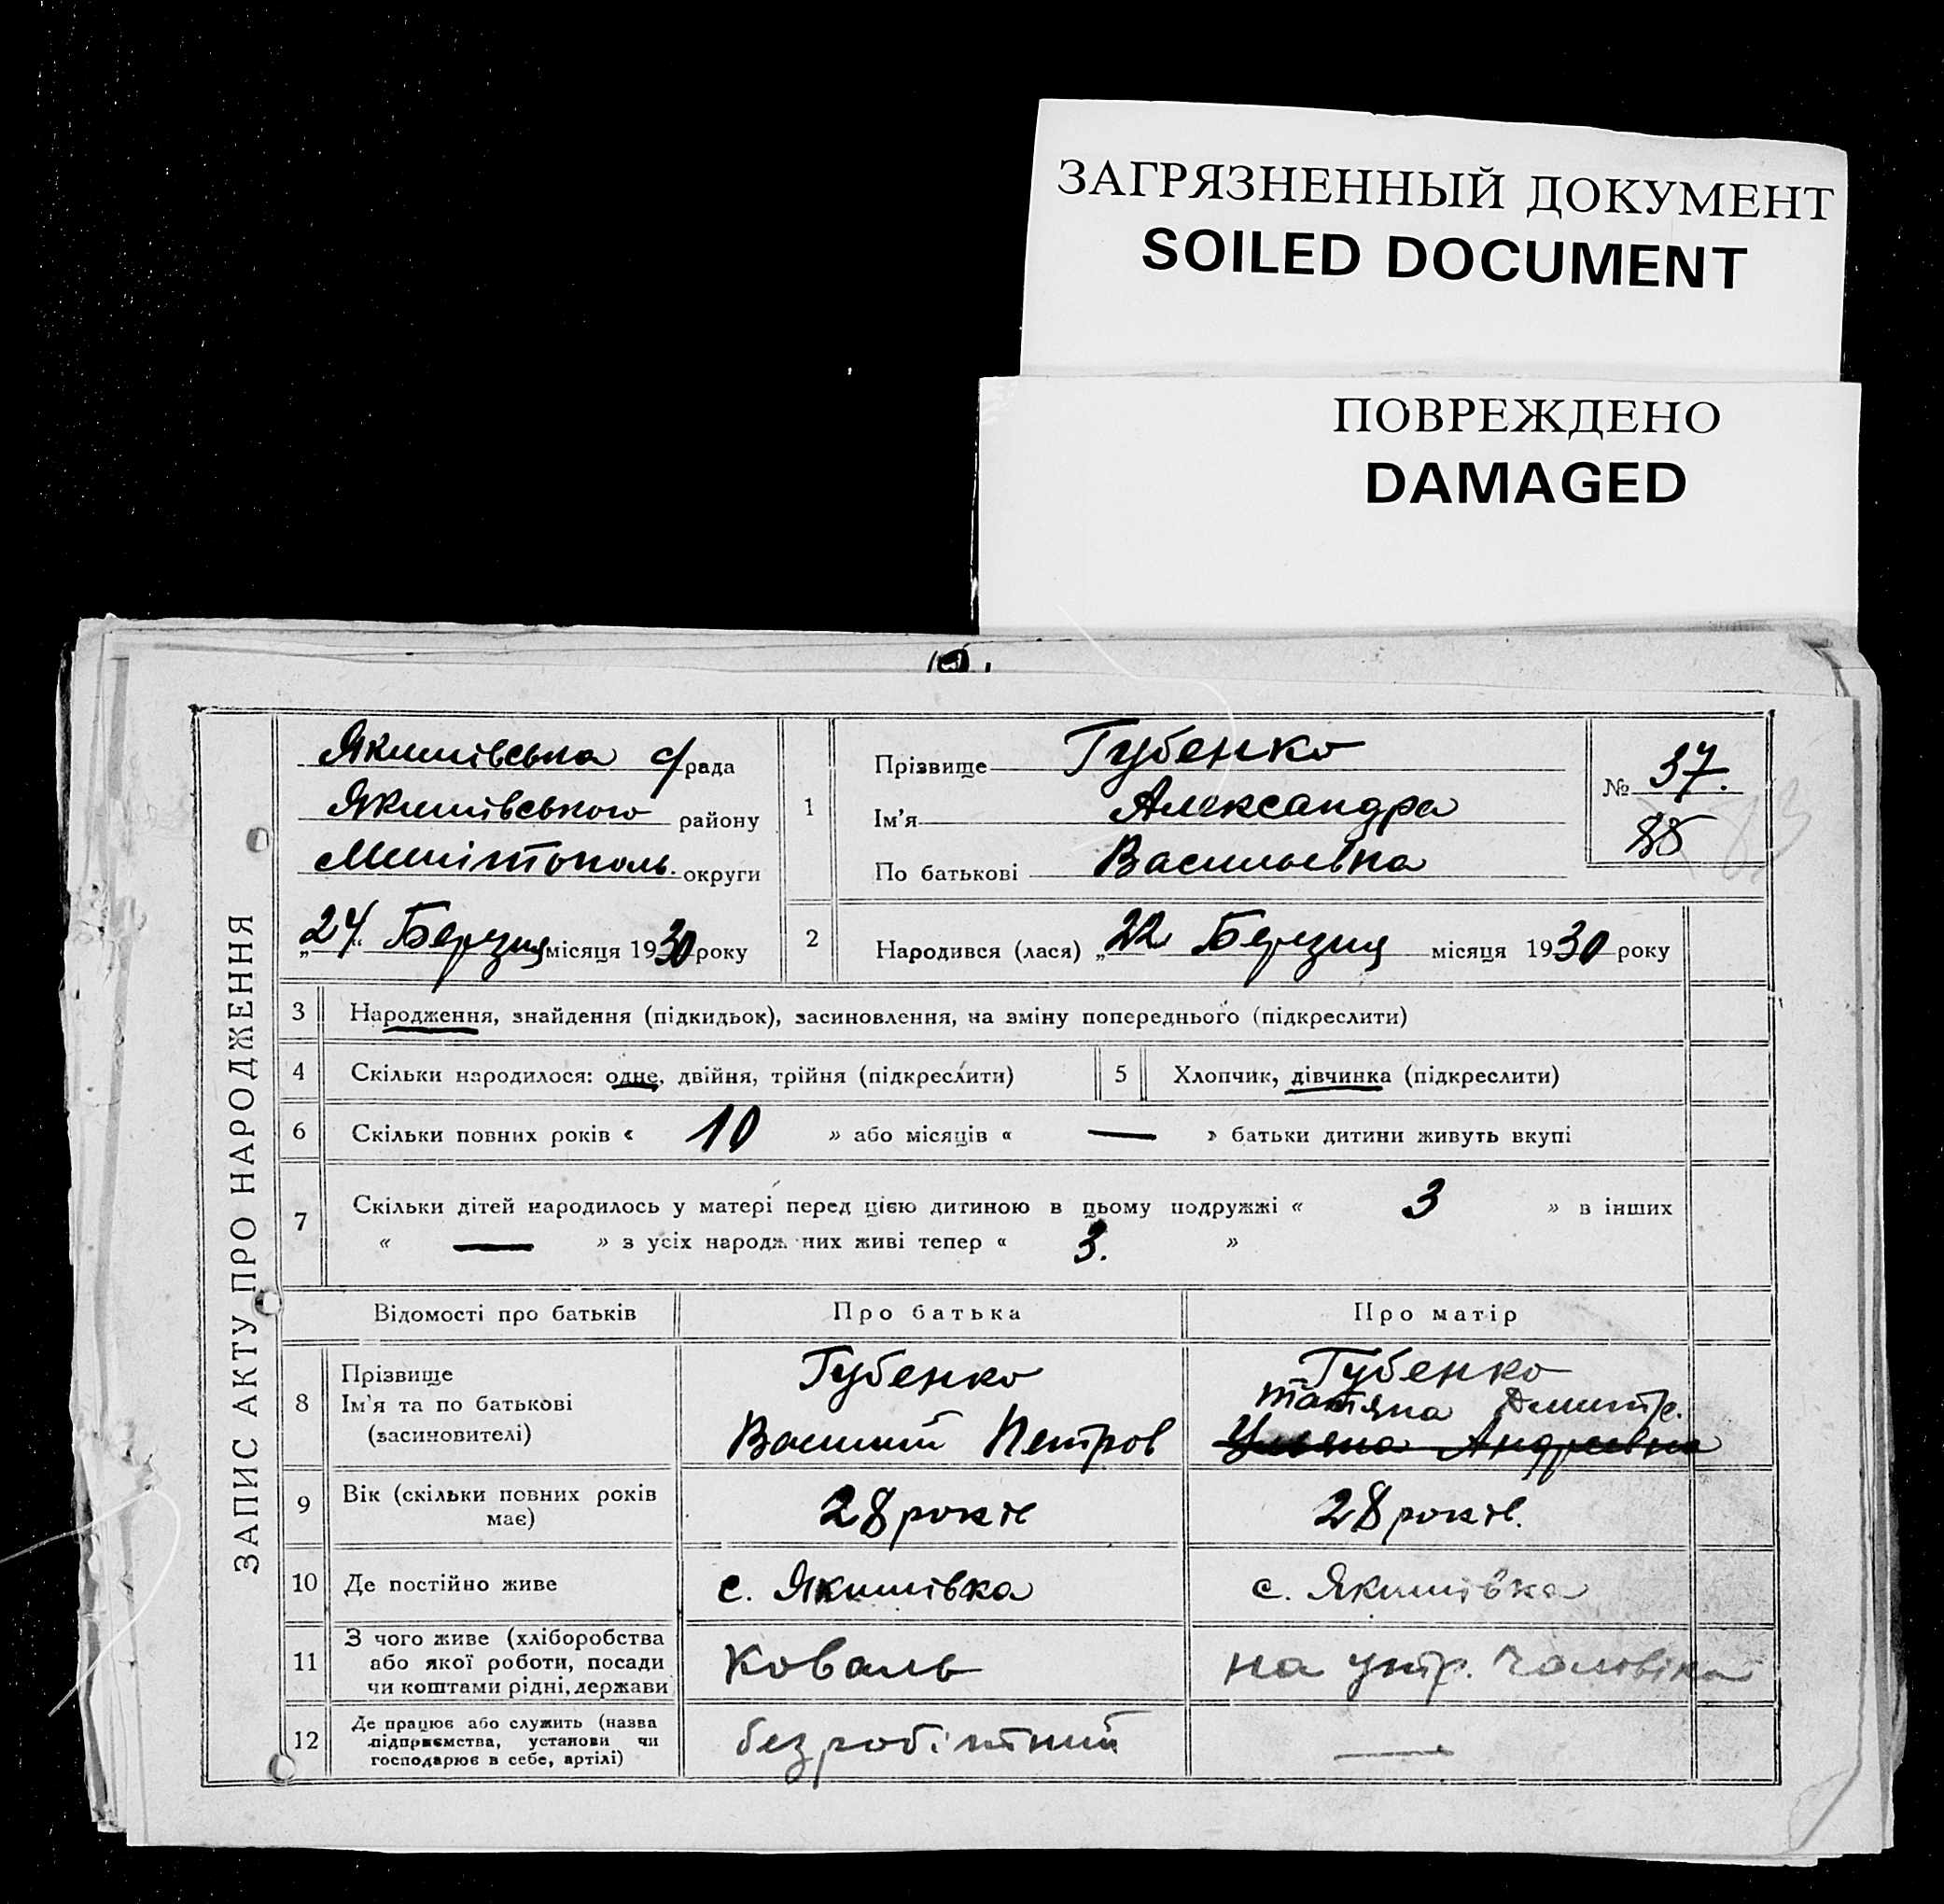 ЗАГРЯЗНЕННЫЙ ДОКУМЕНТ
SOILED DOCUMENT
ПОВРЕЖДЕНО
DAMAGED
ЗАПИС АКТУ ПРО НАРОДЖЕННЯ
Якимівська с/рада
Якимівського району
Мелітополь. округи
„24“ Березня місяця 1930 року
1
Прізвище Губенко
Ім'я Александра
По батькові Васильевна
№ 37.
88
2 Народився (лася) „22 Березня місяця 1930 року
3 Народження, знайдення (підкидьок), засиновлення, на зміну попереднього (підкреслити)
4 Скільки народилося: одне, двійня, трійня (підкреслити) 5 Хлопчик, дівчинка (підкреслити)
6 Скільки повних років « 10 » або місяців « — » батьки дитини живуть вкупі
7 Скільки дітей народилось у матері перед цією дитиною в цьому подружжі « 3 » в інших
« — » з усіх народж них живі тепер « 3. »
Відомості про батьків Про батька Про матір
8 Прізвище
Ім'я та по батькові
(засиновителі)
Губенко
Василий Петров
Губенко
Татяна Дмитр.
Ульяна Андреевна
9 Вік (скільки повних років
має)
28 років
28 років.
10 Де постійно живе с. Якимівка с. Якимівка
11 З чого живе (хліборобства
або якої роботи, посади
чи коштами рідні, держави
Коваль
на утр. чоловіка
12 Де працює або служить (назва
підприємства, установи чи
господарює в себе, артілі)
безробітний
—